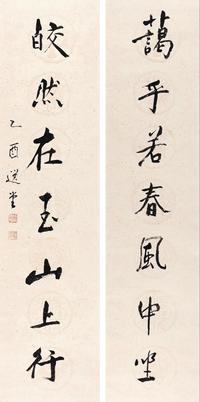 藹乎若春風中坐
皎然在玉山上行
乙酉選堂